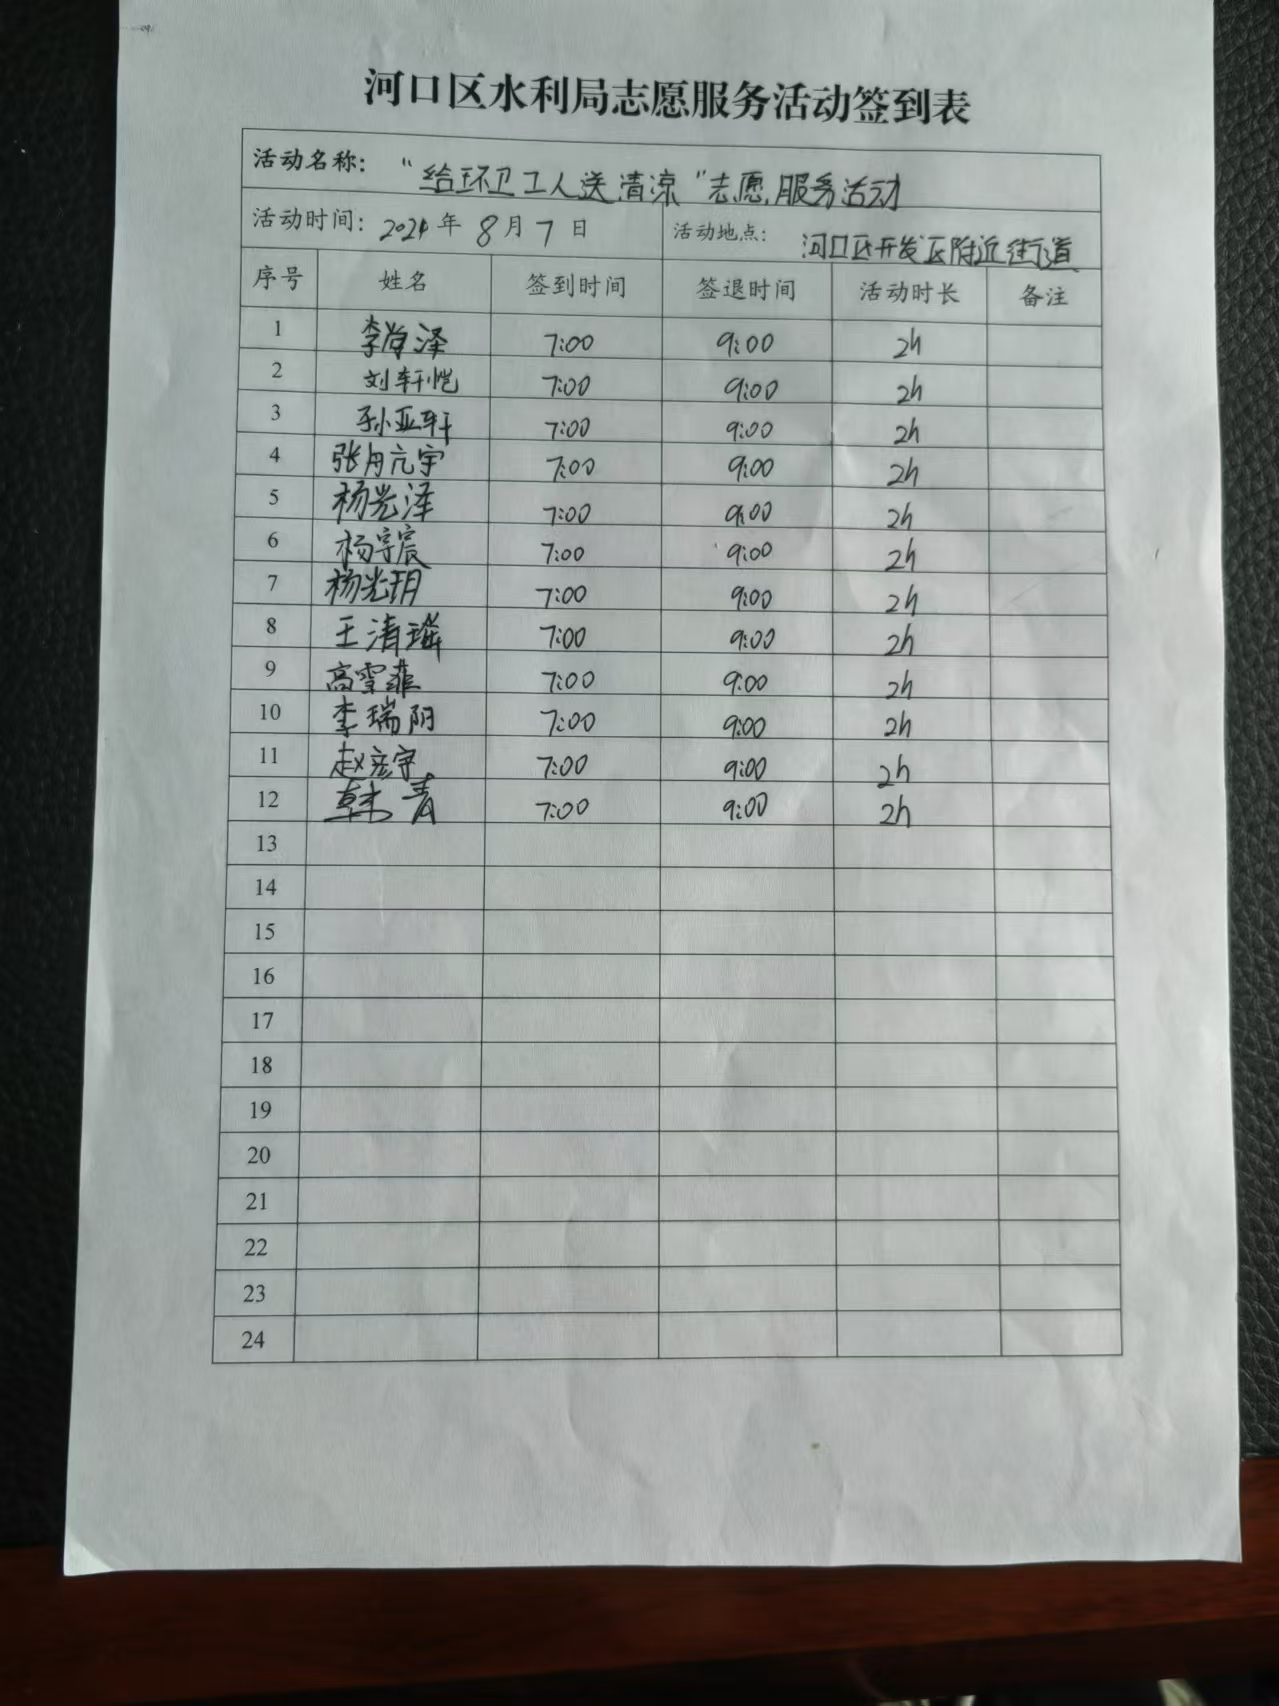 河口区水利局志愿服务活动签到表
活动名称： “给环卫工人送清凉”志愿服务活动
活动时间：2024年8月7日 活动地点：河口区开发区附近街道
序号 姓名 签到时间 签退时间 活动时长 备注
1 李 泽 7:00 9:00 2h
2 刘轩恺 7:00 9:00 2h
3 孙亚轩 7:00 9:00 2h
4 张 宇 7:00 9:00 2h
5 杨光泽 7:00 9:00 2h
6 杨宇宸 7:00 9:00 2h
7 杨光玥 7:00 9:00 2h
8 王清瑶 7:00 9:00 2h
9 高雪菲 7:00 9:00 2h
10 李瑞阳 7:00 9:00 2h
11 赵宏宇 7:00 9:00 2h
12 韩青 7:00 9:00 2h
13
14
15
16
17
18
19
20
21
22
23
24